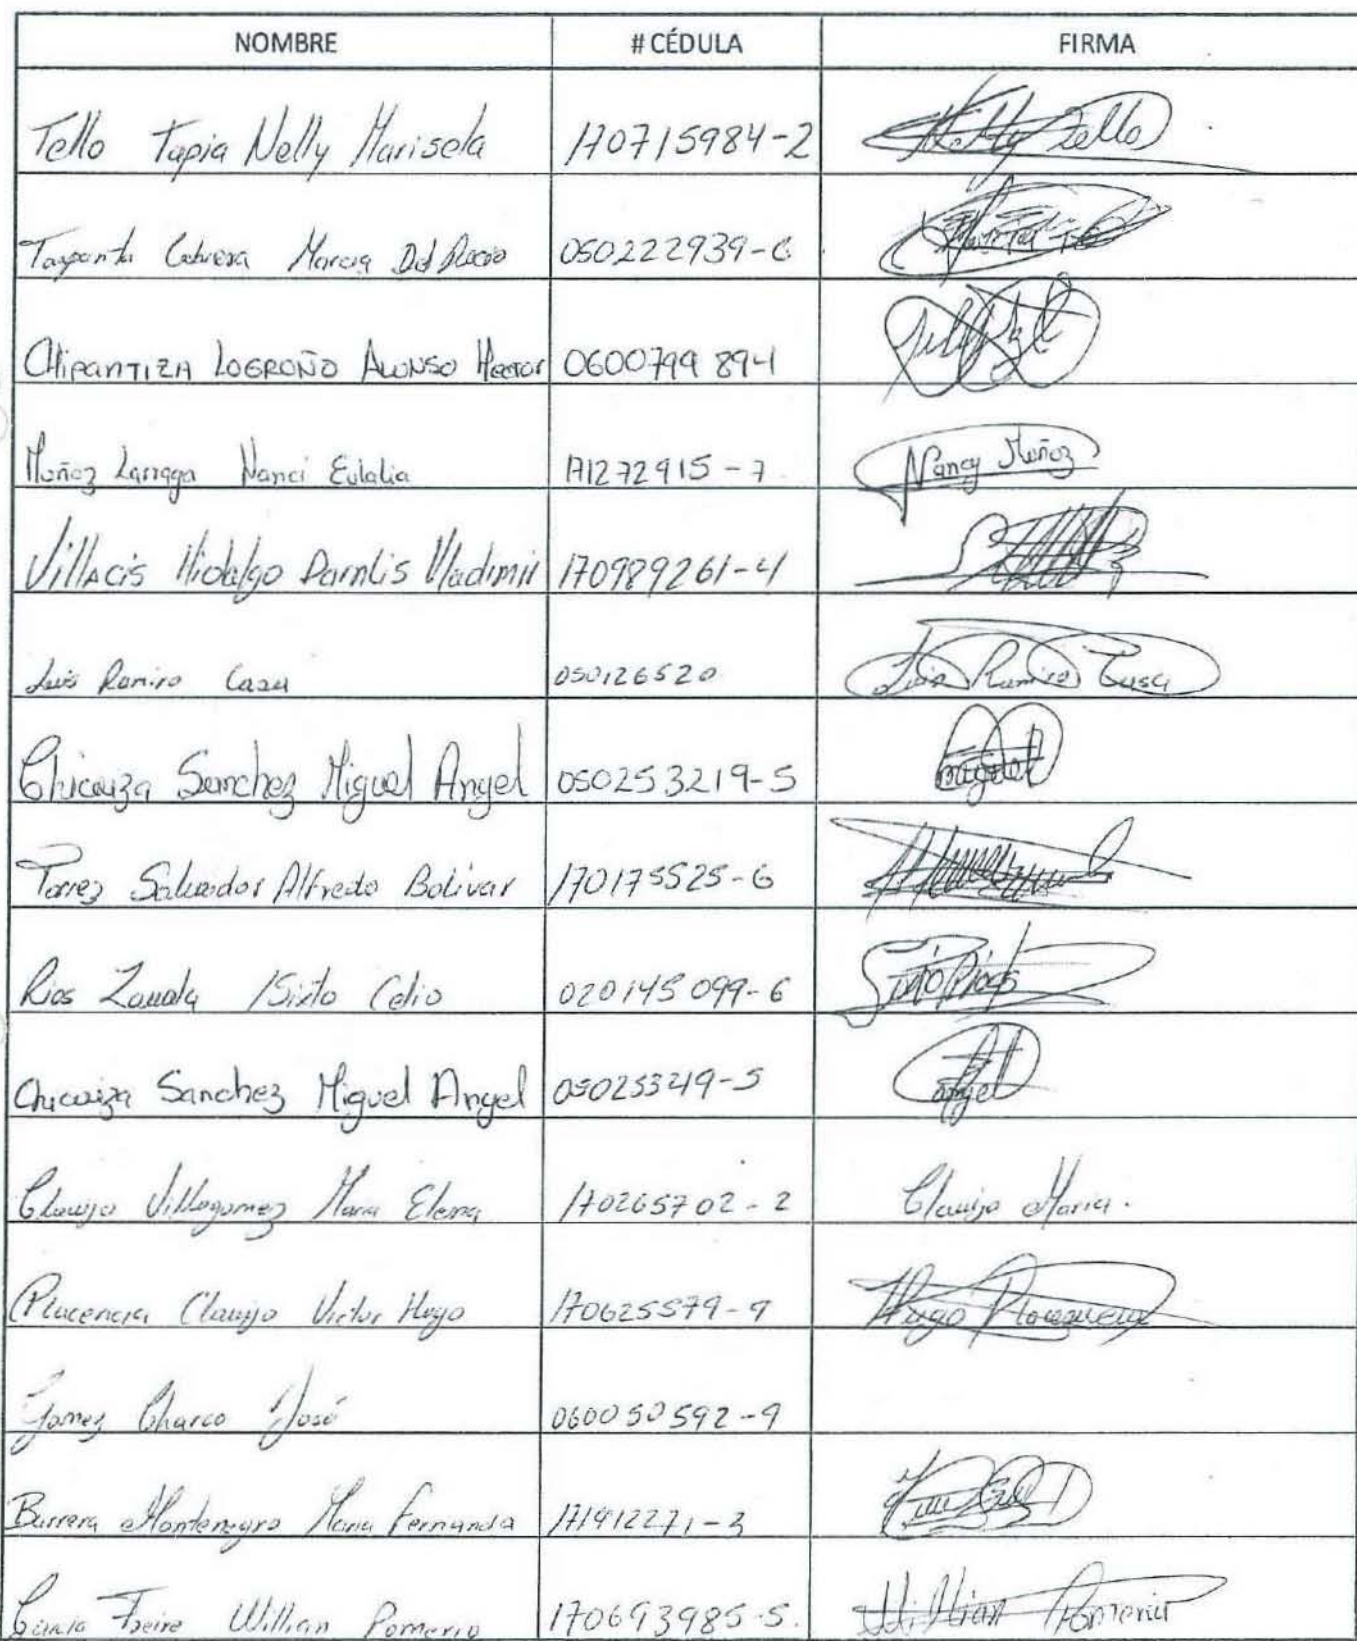 NOMBRE # CÉDULA FIRMA
Tello Tapia Nelly Marisela 170715984-2 Nelly Tello
Cabrera Marcia Del Rocio 050222939-
CHIPANTIZA LOGROÑO ALONSO Hector 0600799894
Muñoz Larraga Nanci Eulalia 171272915-7 Nancy Muñoz
Villacis Hidalgo Darnlis Vladimir 170989261-4
Luis Ramiro Casa 050126520 Luis Ramiro Casa
Chicaiza Sanchez Miguel Angel 050253219-5 Angel
Torrez Salvador Alfredo Bolivar 170175525-6
Rios Zavala Sixto Celio 020145099-6 Sixto Rios
Chicaiza Sanchez Miguel Angel 05025349-5 Angel
Clavijo Villagomez Maria Elena 170265702-2 Clavijo Maria.
Placencia Clavijo Victor Hugo 170625579-9 Hugo
Gomez Charco José 060050592-9
Barrera Montenegro Maria Fernanda 171912271-3
Freire Willian Pomerio 170693985-5. Willian Pomerio